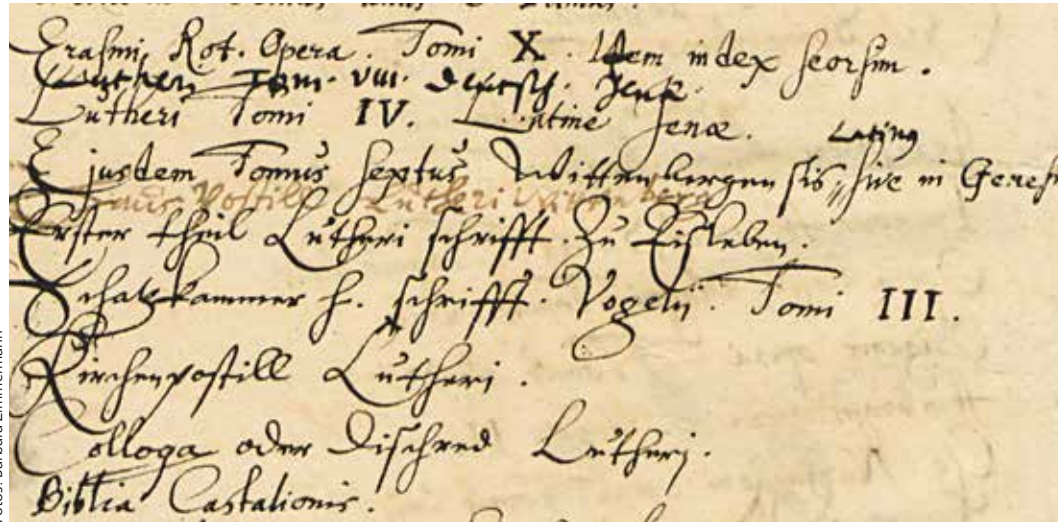 Erasmi Rot. Opera. Tomi X. Item index seorsim.
Lutheri Tom. VIII. Deutsch. Jenæ.
Lutheri Tomi IV. Latine Jenæ. Latinus
Ejusdem Tomus sextus Wittenbergensis, sive in Genes
Postill Lutheri
Erster theil Lutheri schrifft. Zu Eisleben.
Schatzkammer h. schrifft. Vogelij. Tomi III.
Kirchenpostill Lutheri.
Colloqa oder Dischred Lutherj.
Biblia Castalionis.
Fotos: Barbara Zimmermann